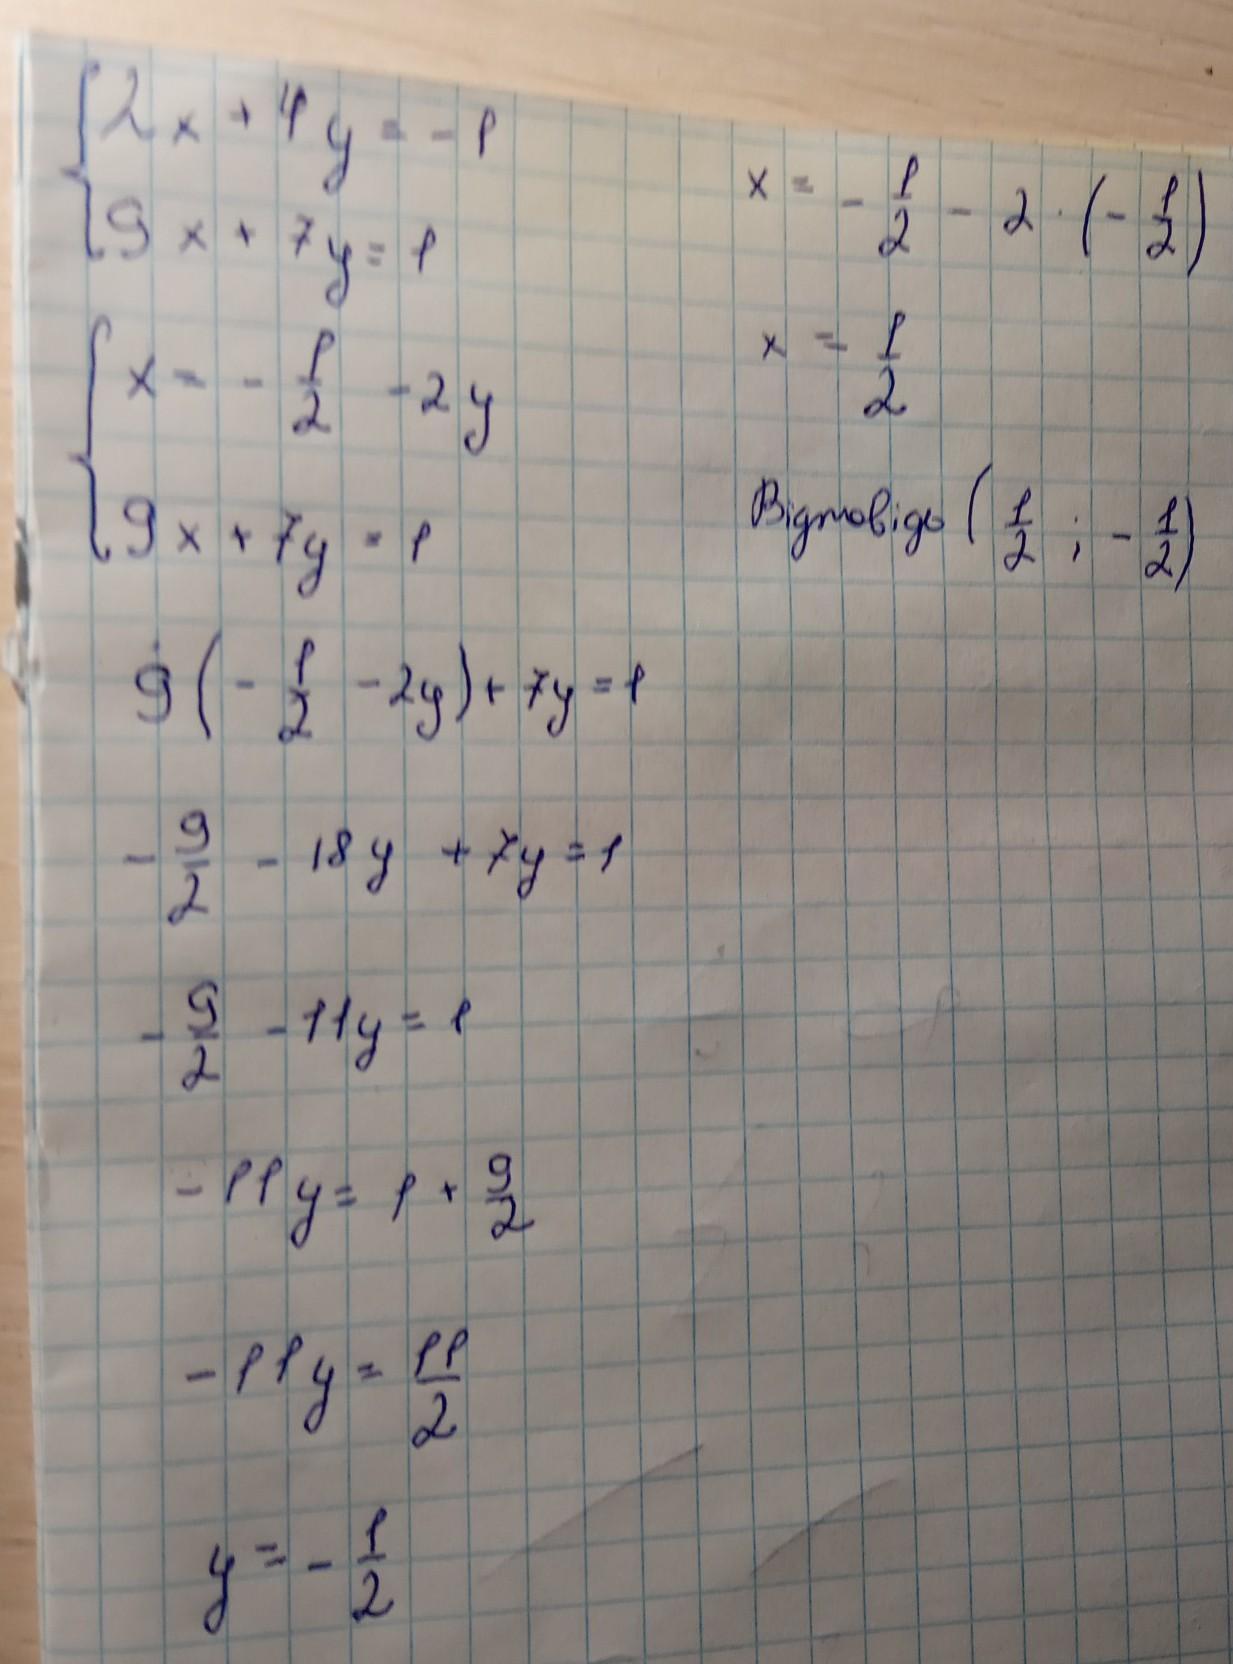 2x + 4y = -1
9x + 7y = 1
x = - 1/2 - 2y
9x + 7y = 1
9(- 1/2 - 2y) + 7y = 1
- 9/2 - 18y + 7y = 1
- 9/2 - 11y = 1
- 11y = 1 + 9/2
- 11y = 11/2
y = - 1/2
x = - 1/2 - 2 · (- 1/2)
x = 1/2
Відповідь (1/2 ; - 1/2)